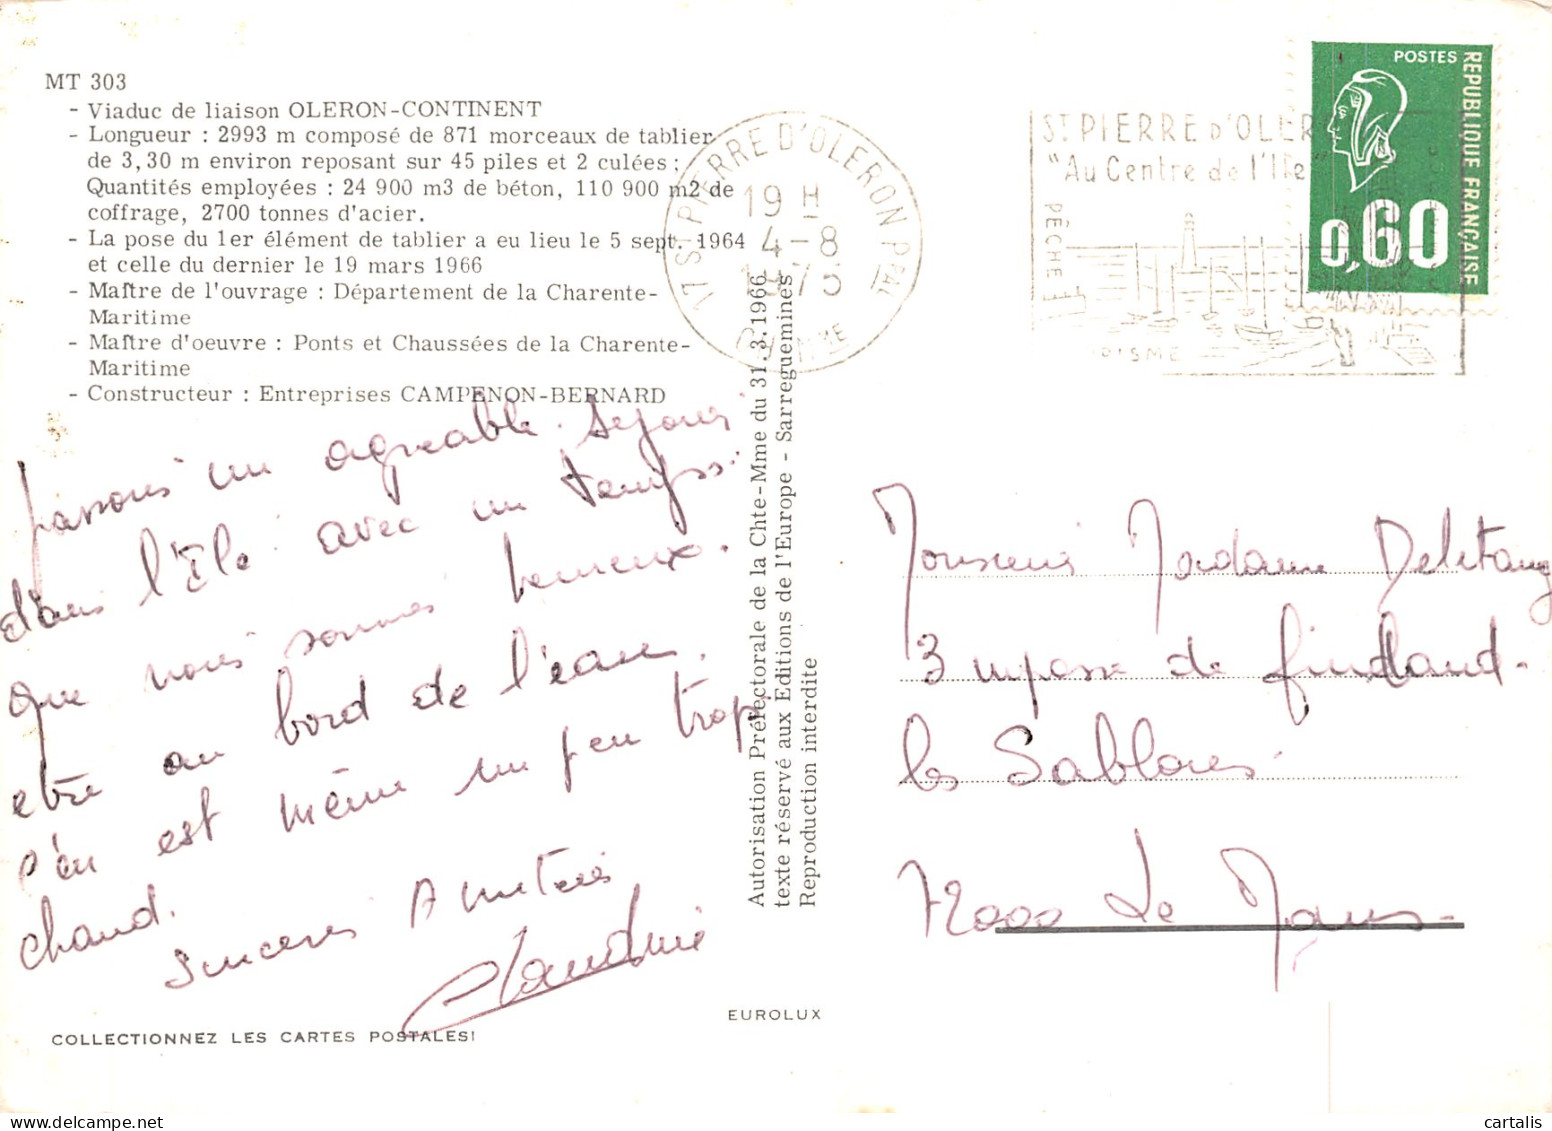 MT 303
- Viaduc de liaison OLERON-CONTINENT
- Longueur : 2993 m composé de 871 morceaux de tablier
de 3,30 m environ reposant sur 45 piles et 2 culées ;
Quantités employées : 24 900 m3 de béton, 110 900 m2 de
coffrage, 2700 tonnes d'acier.
- La pose du 1er élément de tablier a eu lieu le 5 sept. 1964
et celle du dernier le 19 mars 1966
- Maître de l'ouvrage : Département de la Charente-
Maritime
- Maître d'oeuvre : Ponts et Chaussées de la Charente-
Maritime
- Constructeur : Entreprises CAMPENON-BERNARD
passons un agreable sejour
dans l'Ile avec un temps si
que nous sommes heureux
etre au bord de l'eau.
s'en est même un peu trop
chaud.
Sinceres Amities
Claudine
COLLECTIONNEZ LES CARTES POSTALES!
EUROLUX
Autorisation Préfectorale de la Chte-Mme du 31.3.1966
texte réservé aux Editions de l'Europe - Sarreguemines
Reproduction interdite
17 ST PIERRE D'OLERON PPAL
19 H
4-8
1975
ST PIERRE D'OLER
"Au Centre de l'Ile"
PÊCHE
POSTES
REPUBLIQUE FRANÇAISE
0,60
Monsieur Madame Deletang
3 impasse de
les Sablons
72000 Le Mans
cartalis